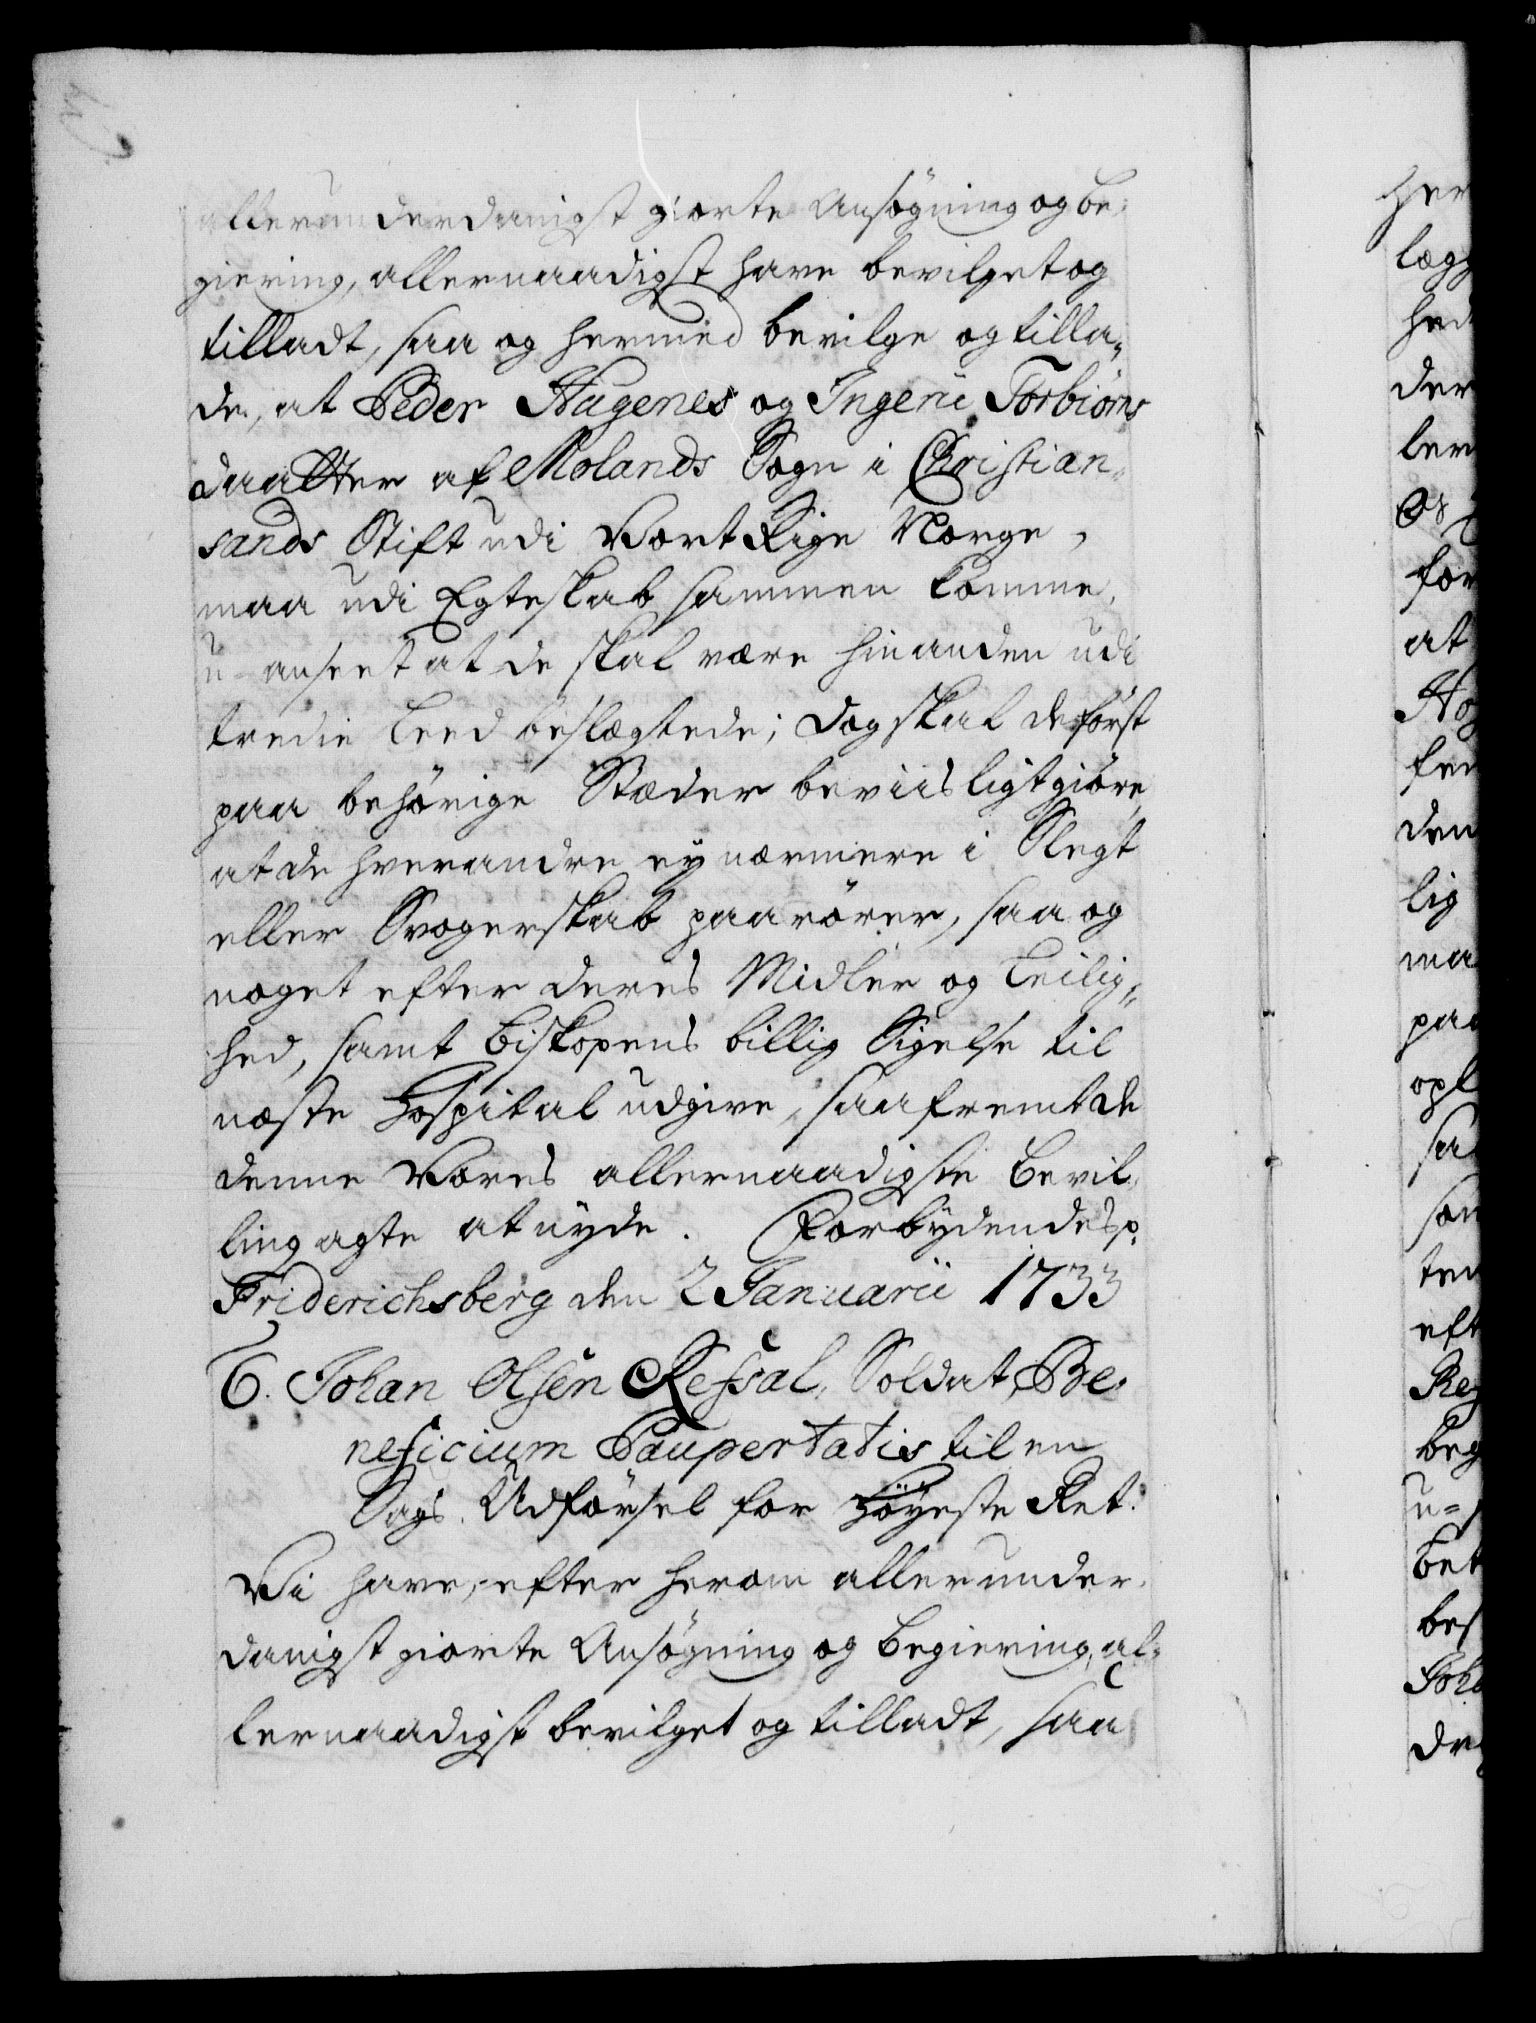 allerunderdanigst giorte Ansøgning og be-
giering, allernaadigst have bevilget og
tilladt, saa og hermed bevilge og tilla-
de, at Peder Haugenes og Ingerii Torbiørns
daatter af Molands Sogn i Christian-
sands Stift udi Vort Rige Norge,
maa udi Egteskab sammen komme,
u-anseet at de skal være hinanden udi
tredie Leed beslægtede; dog skal de først
paa behørige Stæder beviisligt giøre,
at de hverandre ey nærmere i Slegt
eller Svogerskab paarører, saa og
noget efter deres Midler og Leilig-
hed, samt Biskopens billig Sigelse til
næste Hospital udgive, saafremt de
denne Vores allernaadigste Bevil-
ling agte at nyde. Forbydendes p.
Friderichsberg den 2 Januarii 1733
6. Johan Olsen Refsal, Soldat, Be-
neficium Paupertatis til en
Sags Udførsel for Høyeste Ret.
Vi have, efter herom allerunder-
danigst giorte Ansøgning og Begiering, al-
lernaadigst bevilget og tilladt, saa